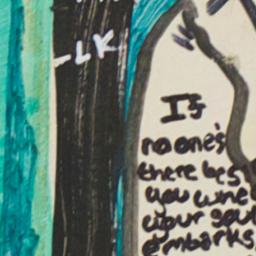 -LK
Is
no one's
there bes
your soul
embarks